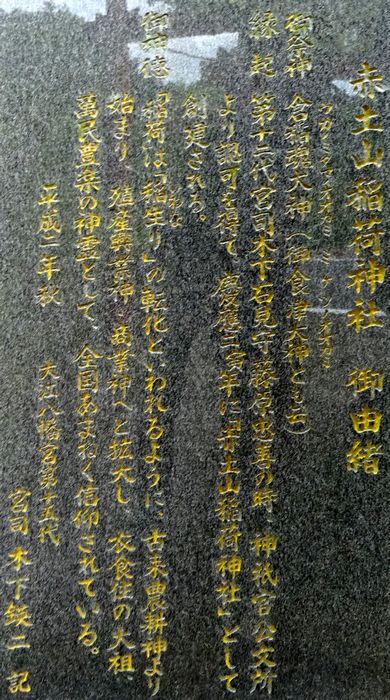 赤土山稲荷神社 御由緒
御祭神 倉稲魂大神(御食津大神とも云)
ウカノミタマノオオカミ ミケツノオオカミ
縁起 第十二代宮司木下石見守藤原忠善の時、神祇官公文所
より認可を得て、慶應三寅年に「赤土山稲荷神社」として
創建される。
御神徳 「稲荷は「稲生り」の転化といわれるように、古来農耕神より
いねな
始まり、殖産興業神、商業神へと拡大し、衣食住の大祖、
萬民豊楽の神霊として、全国あまねく信仰されている。
平成二年秋 大江八幡宮第十五代
宮司 木下鋭二 記